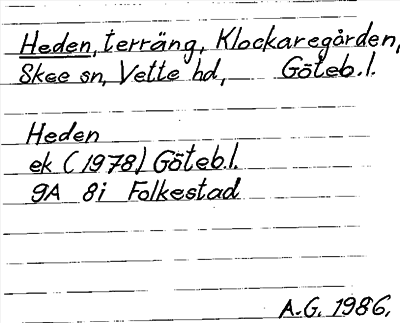 Heden, terräng, Klockaregården,
Skee sn, Vette hd, Göteb.l.
Heden
ek (1978) Göteb.l.
9A 8i Folkestad
A.G. 1986.